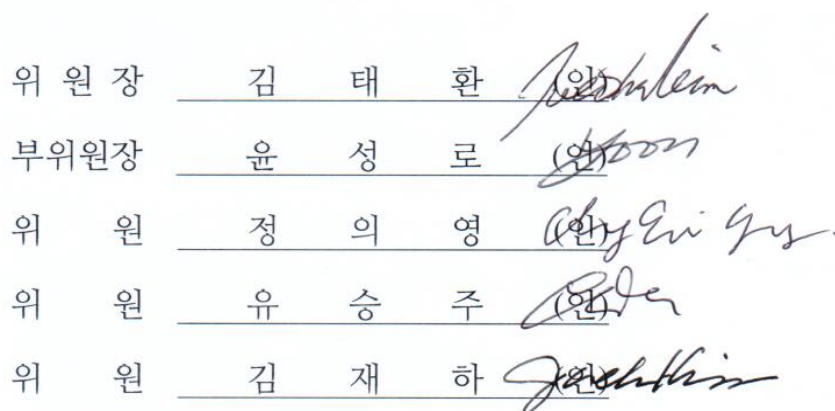 위 원 장 김 태 환 (인)
부위원장 윤 성 로 (인)
위 원 정 의 영 (인)
위 원 유 승 주 (인)
위 원 김 재 하 (인)